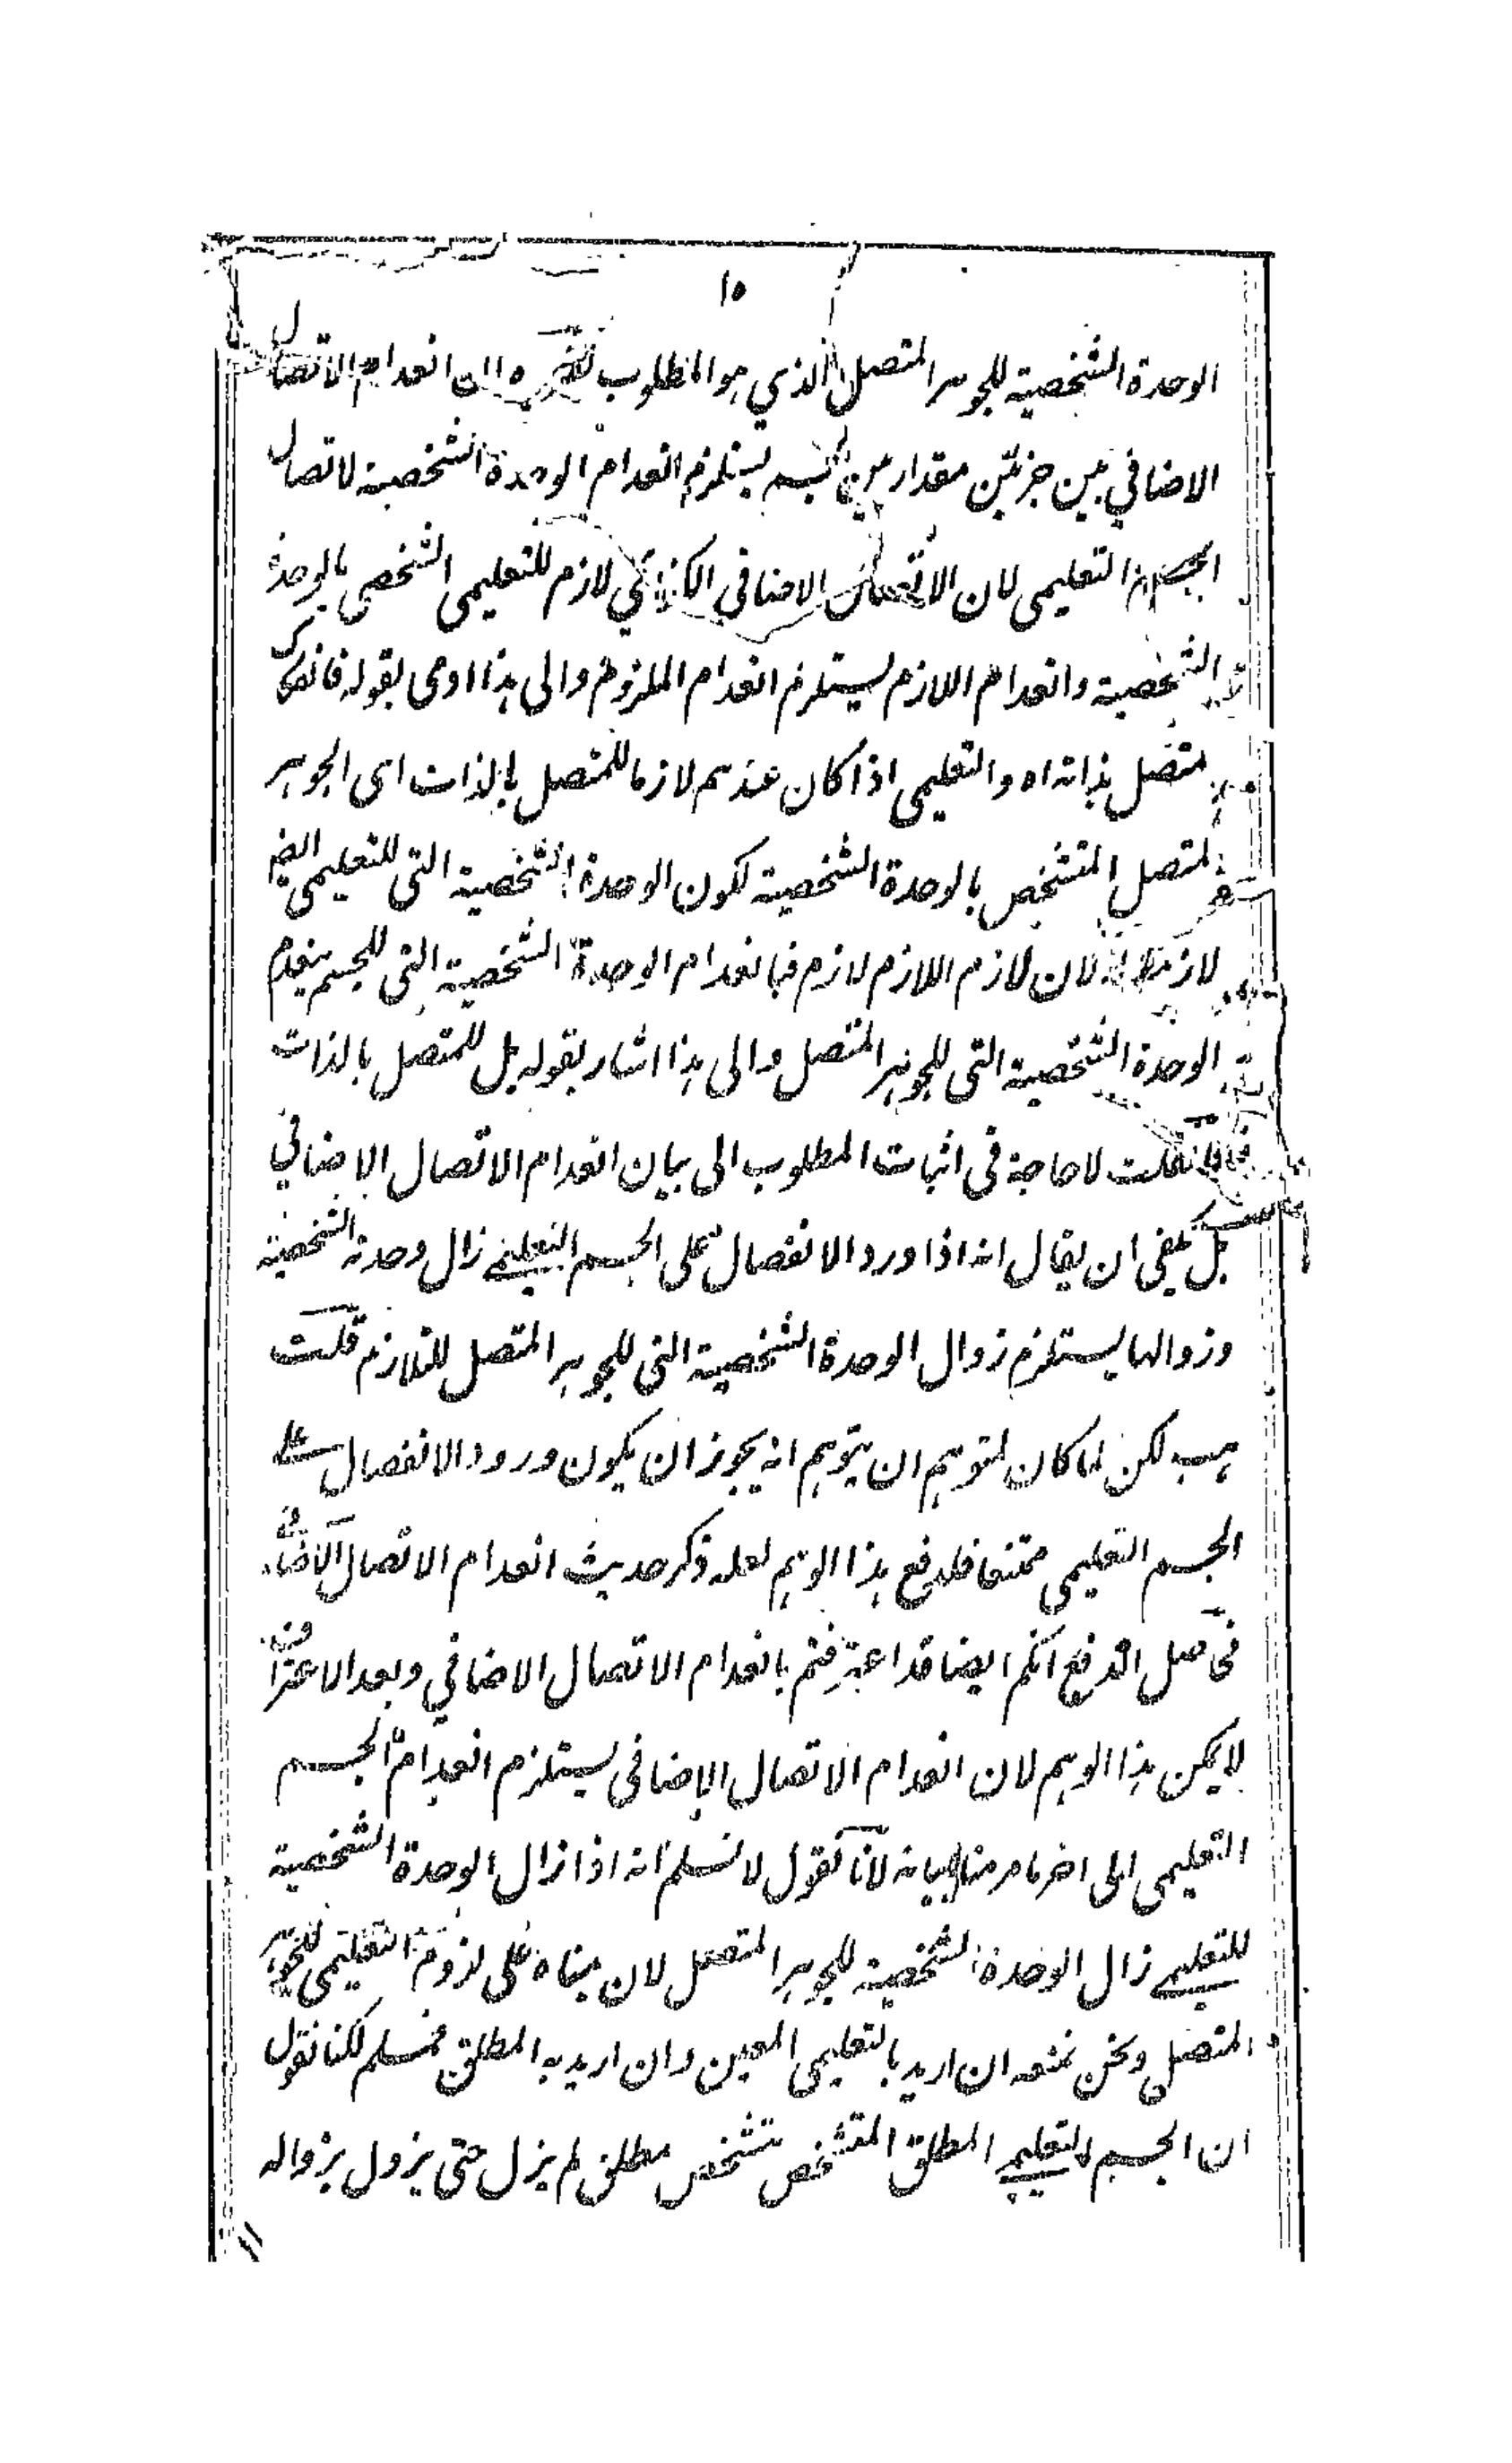 ١٥
الوحدة الشخصية للجوهر المتصل الذي هو المطلوب ان انعدام الاتصال
الاضافي بين جزئين مقدارين للجسم يستلزم انعدام الوحدة الشخصية لاتصال
الجسم التعليمى لان الاتصال الاضافي الكذائي لازم للتعليمى الشخصى بالوحدة
الشخصية وانعدام اللازم يستلزم انعدام الملزوم والى هذا اومى بقوله فانفكاك
متصل بذاته اه والتعليمى اذا كان عندهم لازما للمتصل بالذات اى الجوهر
المتصل المتشخص بالوحدة الشخصية لكون الوحدة الشخصية التى للتعليمى ايضا
لازمة له لان لازم اللازم لازم فبانعدام الوحدة الشخصية التى للجسم ينعدم
الوحدة الشخصية التى للجوهر المتصل والى هذا اشار بقوله بل للمتصل بالذات
فان قلت لا حاجة فى اثبات المطلوب الى بيان انعدام الاتصال الاضافي
بل يكفى ان يقال انه اذا ورد الانفصال على الجسم التعليمے زال وحدته الشخصية
وزوالها يستلزم زوال الوحدة الشخصية التى للجوهر المتصل للتلازم قلت
هب لكن لما كان لمتوهم ان يتوهم انه يجوز ان يكون ورود الانفصال على
الجسم التعليمى ممتنعا فلدفع هذا الوهم لعله ذكر حديث انعدام الاتصال الاضافى
فحاصل الدفع انكم ايضا قد اعترفتم بانعدام الاتصال الاضافي وبعد الاعتراف
لا يمكن هذا الوهم لان انعدام الاتصال الاضافى يستلزم انعدام الجسم
التعليمى الى اخر ما مر منا بيانه لانا نقول لا نسلم انه اذا زال الوحدة الشخصية
للتعليمے زال الوحدة الشخصية للجوهر المتصل لان مبناه على لزوم التعليمى للجوهر
المتصل ونحن نمنعه ان اريد بالتعليمى المعين وان اريد به المطلق فمسلم لكنا نقول
ان الجسم التعليمے المطلق المتشخص بتشخص مطلق لم يزل حتى يزول بزواله